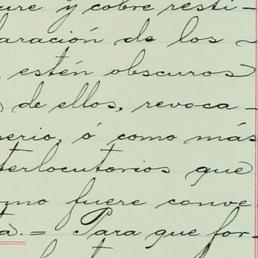 ure y cobre resti-
laración de los -
estén obscuros
de ellos, revoca-
perio, ó como más
terlocutorios que
mo fuere conve
ta. = Para que for-